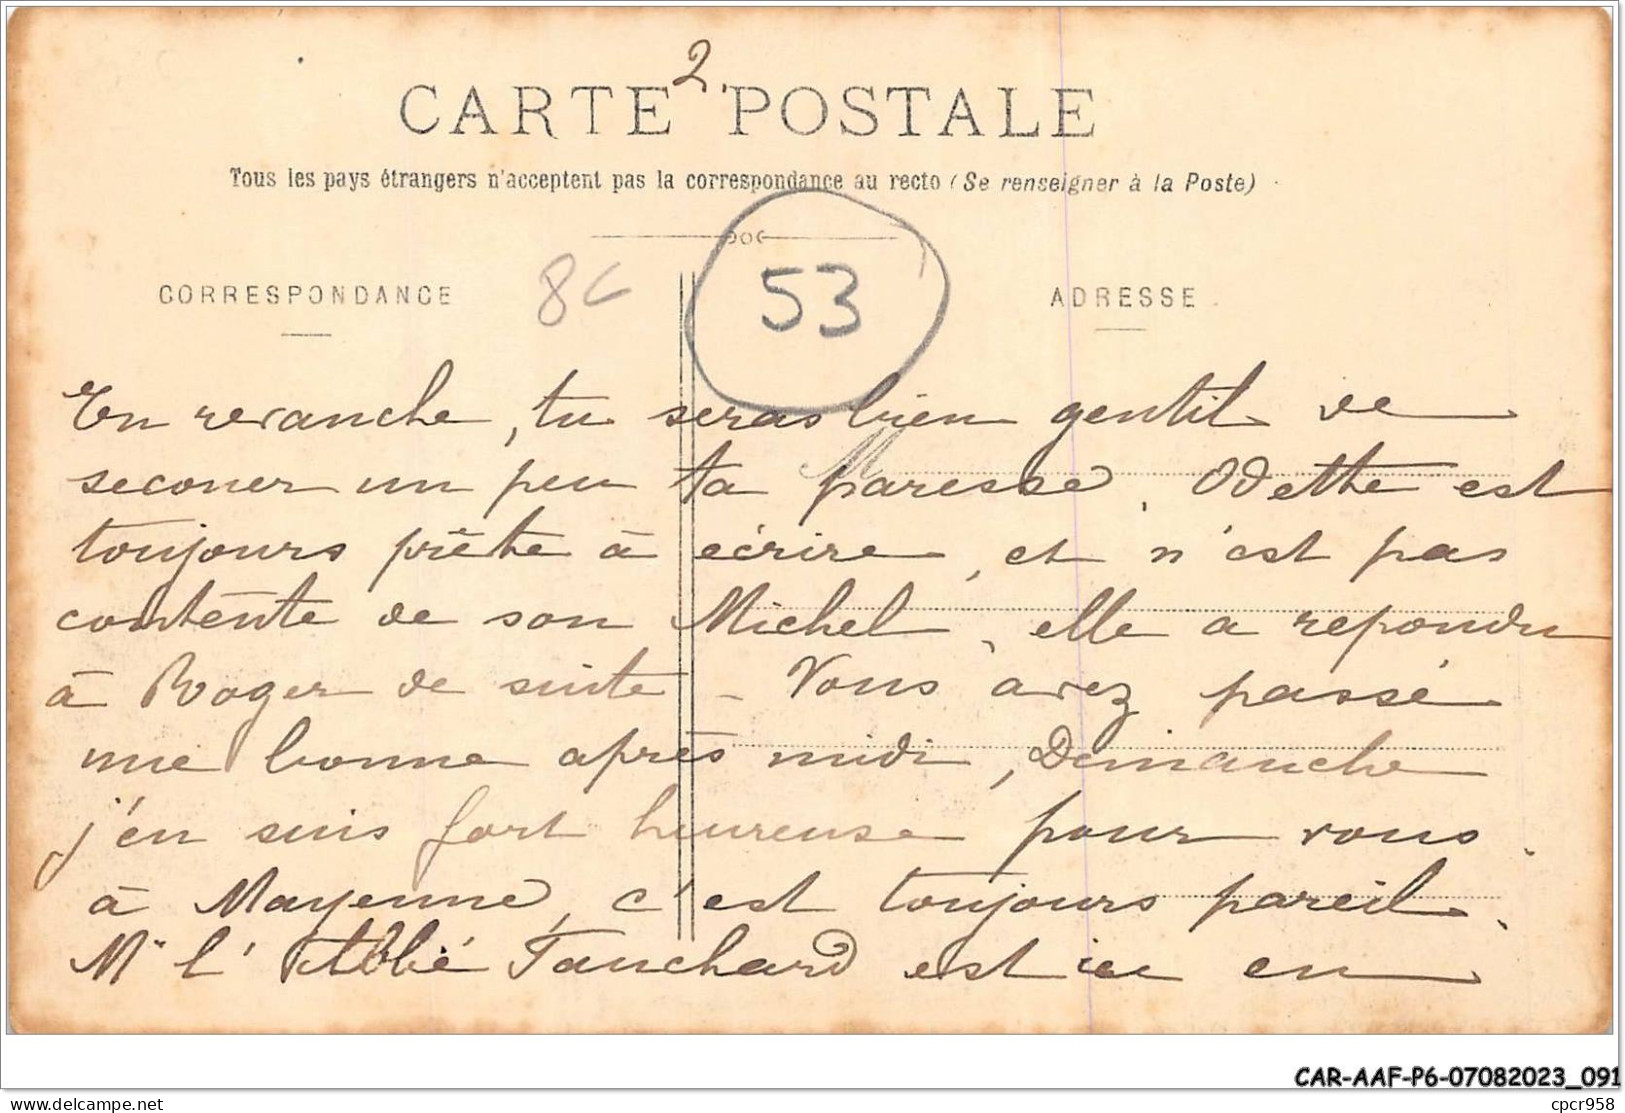 2
CARTE POSTALE
Tous les pays étrangers n'acceptent pas la correspondance au recto (Se renseigner à la Poste)
CORRESPONDANCE
8€
53
ADRESSE
M
En revanche, tu seras bien gentil de
secouer un peu ta paresse. Odette est
toujours prête à écrire, et n'est pas
contente de son Michel, elle a répondu
à Roger de suite - Vous avez passé
une bonne après midi, Dimanche
j'en suis fort heureuse pour vous.
à Mayenne, c'est toujours pareil.
Mr l'Abbé Tanchard est ici en
CAR-AAF-P6-07082023_091
delcampe.net
cpcr958